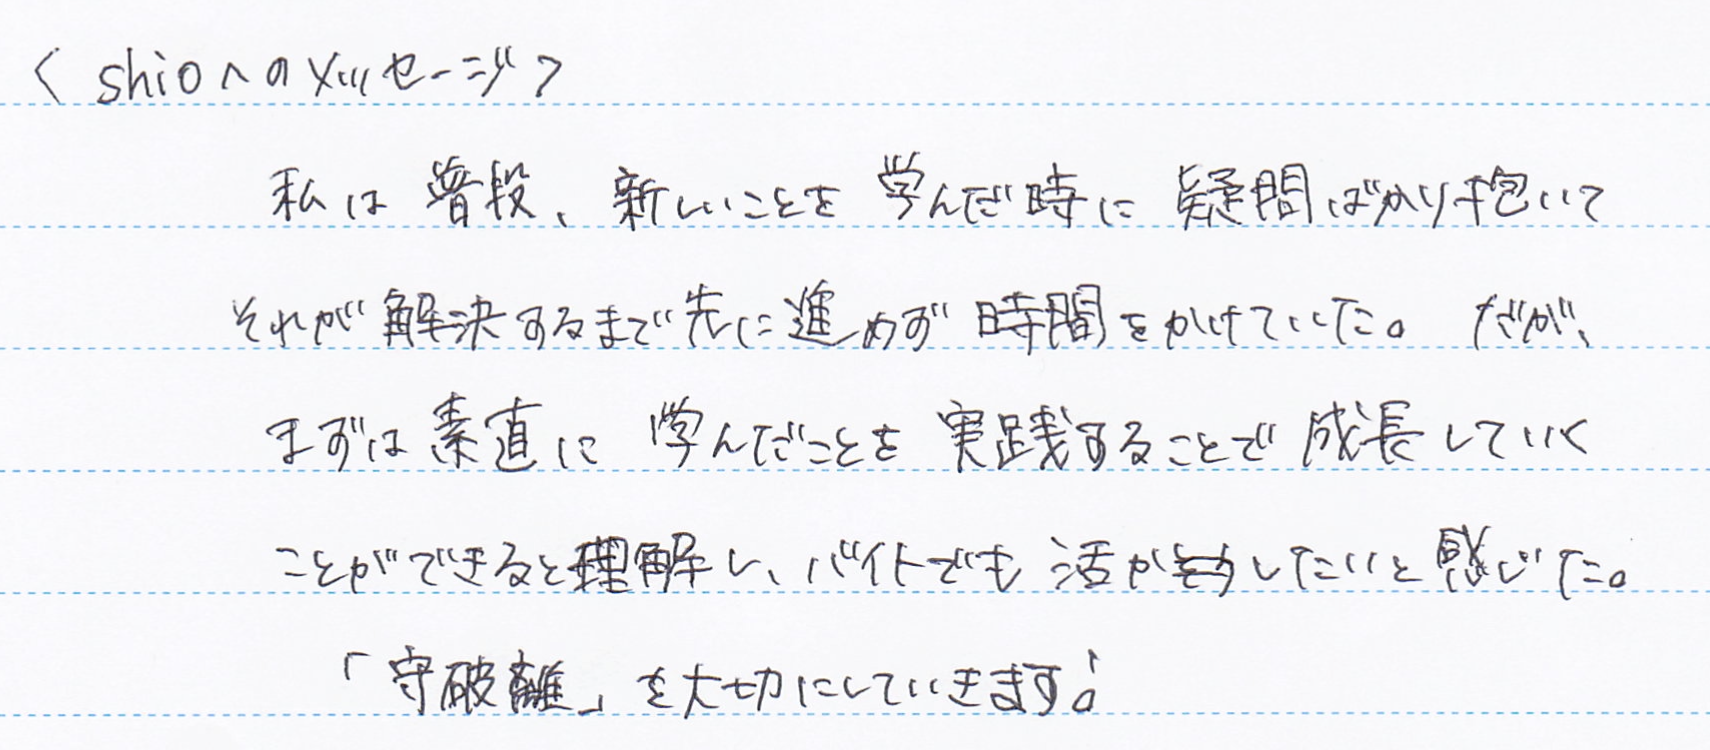 < shioへのメッセージ >
私は普段、新しいことを学んだ時に疑問ばかり抱いて
それが解決するまで先に進めず時間をかけていた。だが、
まずは素直に学んだことを実践することで成長していく
ことができると理解し、バイトでも活かしたいと感じた。
「守破離」を大切にしていきます!